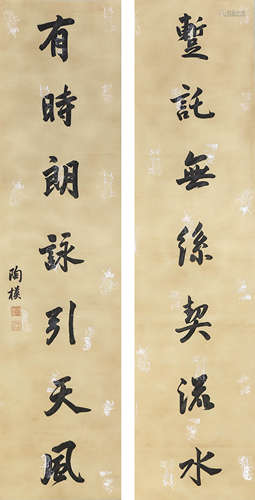 暫託無絲契流水
有時朗詠引天風
陶模